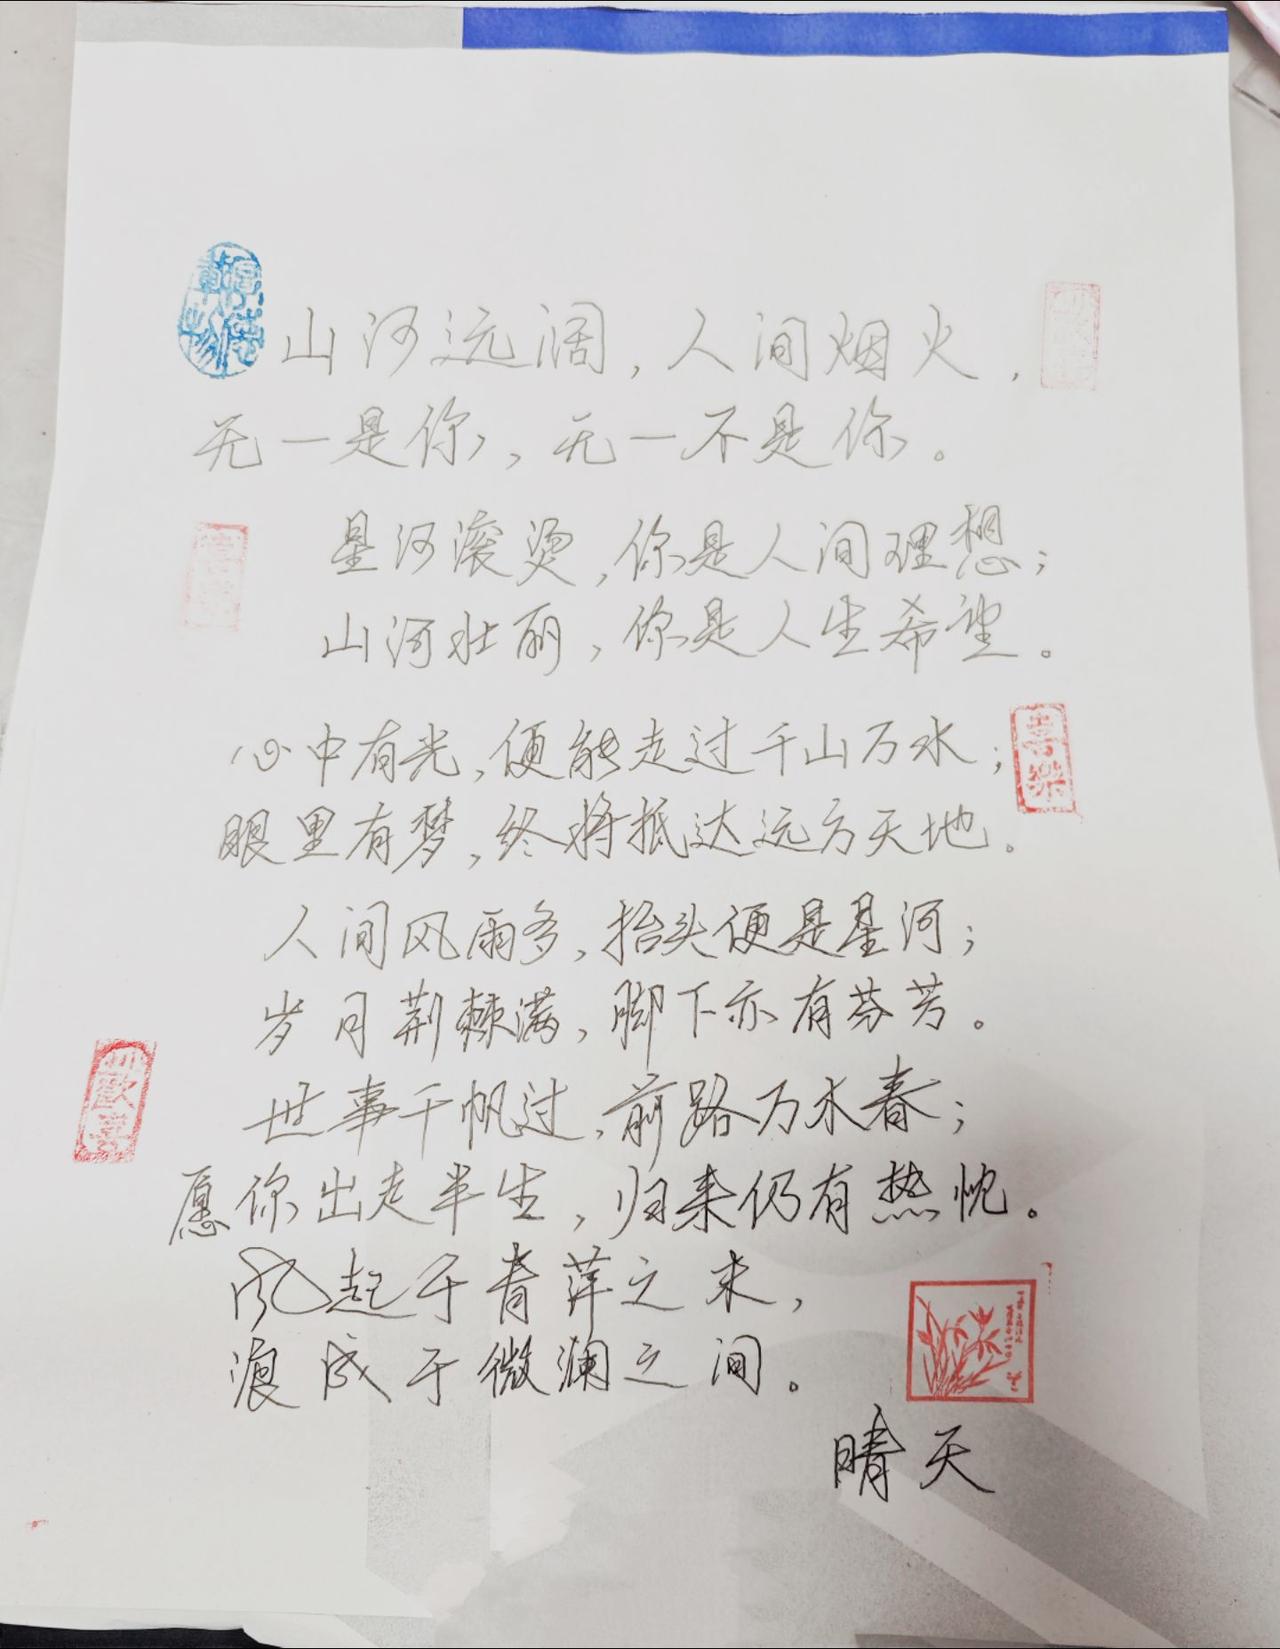 山河远阔，人间烟火，
无一是你，无一不是你。
星河滚烫，你是人间理想；
山河壮丽，你是人生希望。
心中有光，便能走过千山万水；
眼里有梦，终将抵达远方天地。
人间风雨多，抬头便是星河；
岁月荆棘满，脚下亦有芬芳。
世事千帆过，前路万木春；
愿你出走半生，归来仍有热忱。
风起于青萍之末，
浪成于微澜之间。
晴天
厚德載物
喜樂
歡喜